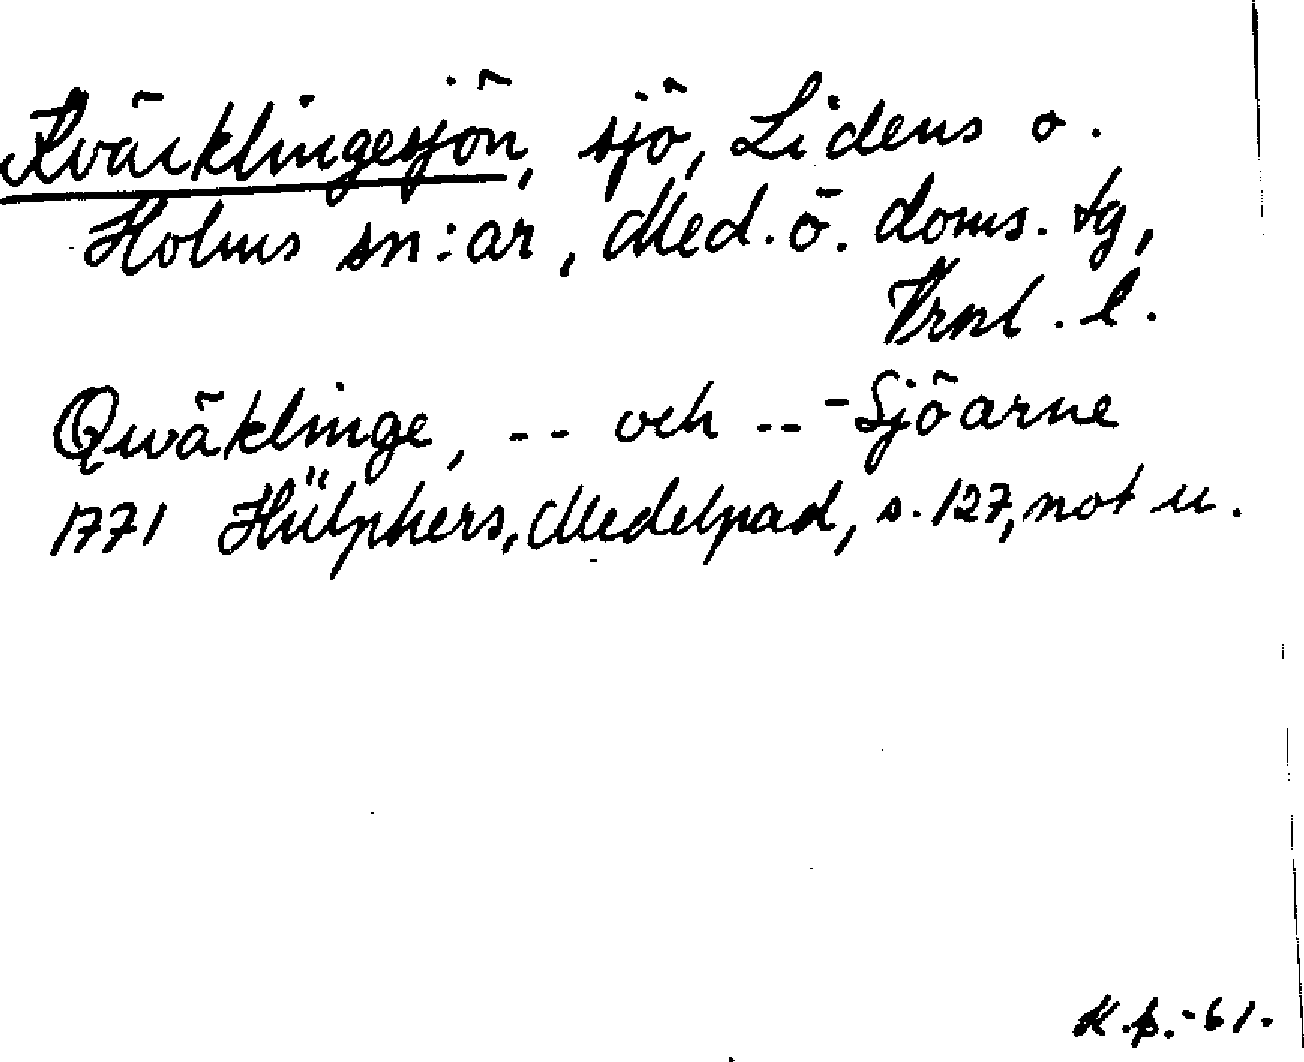 Kväcklingesjön, sjö, Lidens o.
Holms sn:ar, Med. ö. doms. tg,
Vrnl. l.
Qwäklinge, -- och -- -Sjöarne
1771 Hülphers, Medelpad, s. 127, not u.
K.p.-61.